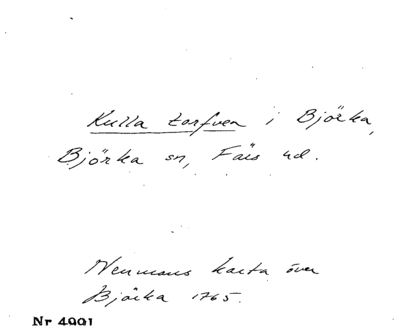 Kulla torfven i Björka,
Björka sn, Färs hd.
Neumans karta över
Björka 1765.
Nr 4001